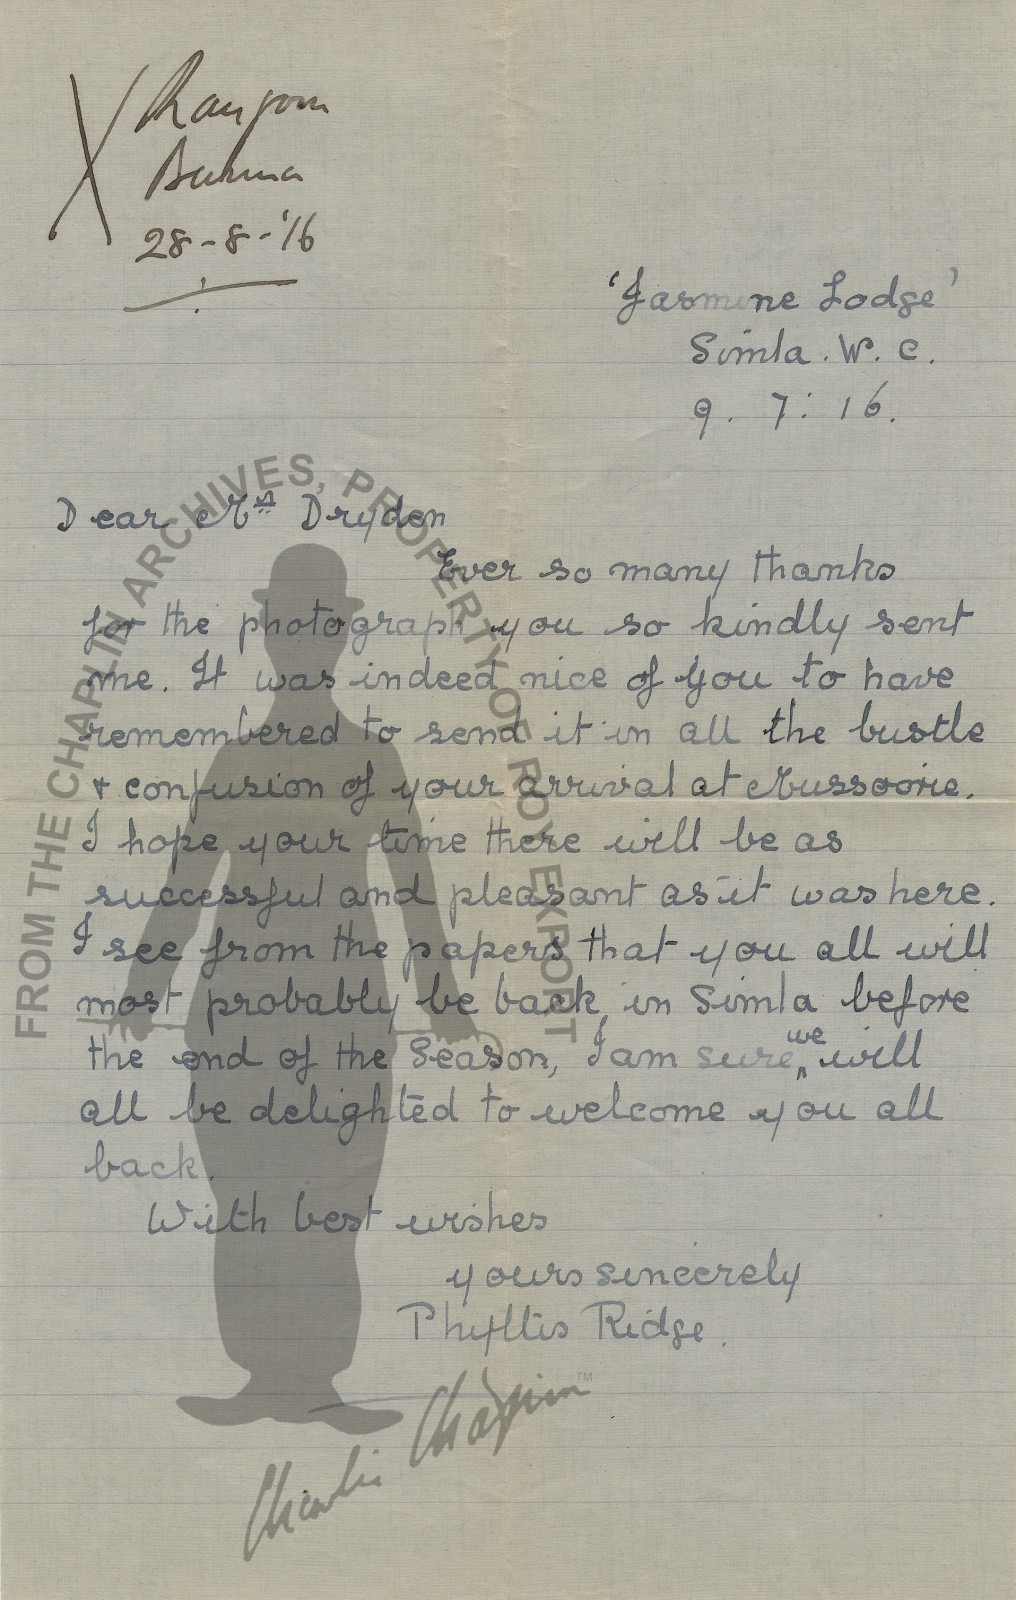 Rangoon
Burma
28-8-'16
'Jasmine Lodge'
Simla. W. C.
9. 7: 16.
Dear Mrs Dryden
Ever so many thanks
for the photograph you so kindly sent
me. It was indeed nice of you to have
remembered to send it in all the bustle
& confusion of your arrival at Mussoorie.
I hope your time there will be as
successful and pleasant as it was here.
I see from the papers that you all will
most probably be back in Simla before
the end of the Season, I am sure we will
all be delighted to welcome you all
back.
With best wishes
yours sincerely
Phyllis Ridge.
FROM THE CHAPLIN ARCHIVES, PROPERTY OF ROY EXPORT
Charlie Chaplin™